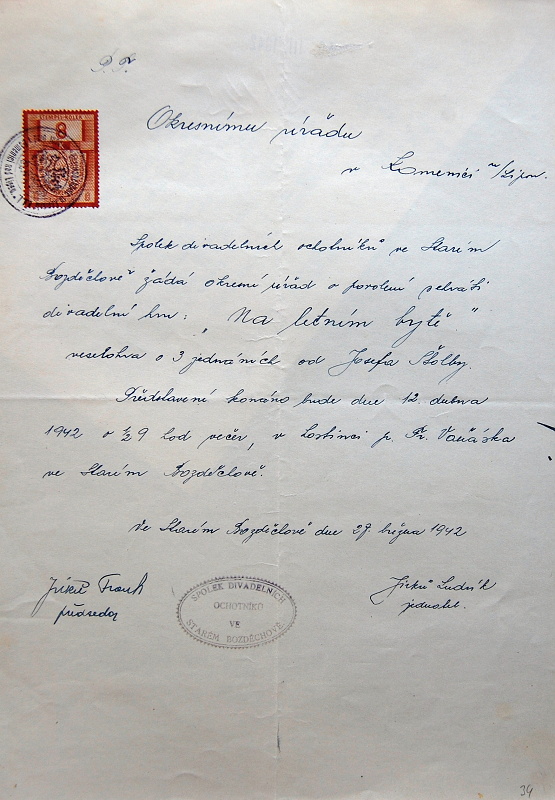 P. T.
STEMPEL-ROLEK
8
K
Okresnímu úřádu
v Lomnici n/Lipou.
Spolek divadelních ochotníků ve Starém
Bozděchově žádá okresní úřád o povolení
divadelní hru: „Na letním bytě"
veselohra o 3 jednáních od Josefa Štolby.
Představení konáno bude dne 12. dubna
1942 o ½9 hod večer, v hostinci p. Fr. Vaňáska
ve Starém Bozděchově.
Ve Starém Bozděchově dne 27. března 1942
Jirků Frant
předseda
SPOLEK DIVADELNÍCH
OCHOTNÍKŮ
VE
STARÉM BOZDĚCHOVĚ
Jirků Ludvík
jednatel.
34